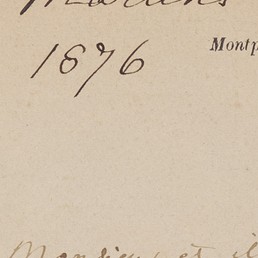 1876
Montp
Monsieur et il